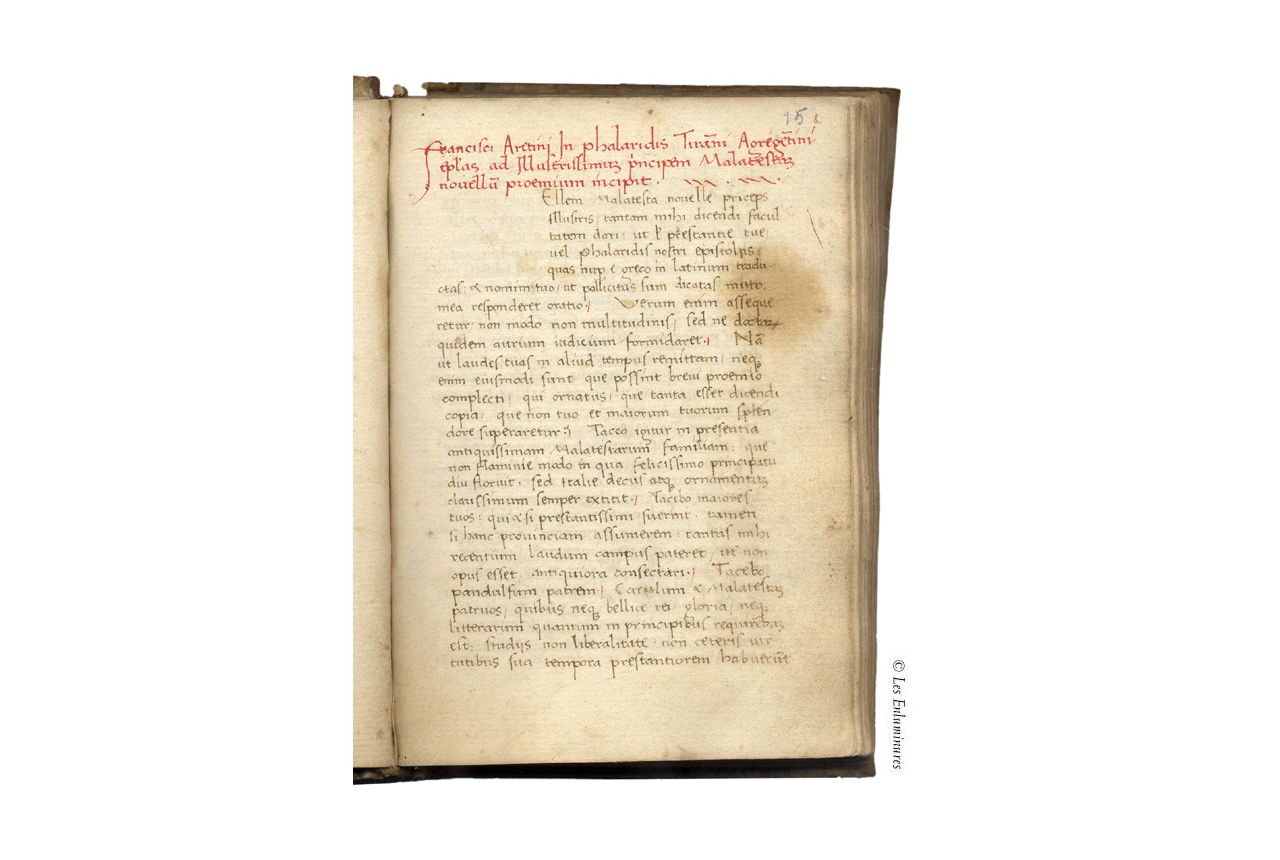 15
Francisci Aretini In phalaridis Tiranni Agregẽtini
ep̃las ad Illustrissimuꝫ p̃ncipem Malatestaꝫ
novellũ proemium incipit.
Ellem Malatesta novelle priceps
illustris, tantam mihi dicendi facul
tatem dari: ut prestantie tue,
vel phalaridis nostri epistolis:
quas nup e greco in latinum tradu
ctas, & nomini tuo, ut pollicitus sum dicatas mitto:
mea responderet oratio. Verum enim asseque
retur, non modo non multitudinis, sed ne doctoꝝ
quidem aurum iudicium formidaret. Nã
ut laudes tuas in aliud tempus remittam, neqꝫ
enim eiusmodi sunt que possint brevi proemio
complecti, qui ornatus, que tanta esset dicendi
copia: que non tuo et maiorum tuorum splen
dore superaretur: Taceo igitur in presentia
antiquissimam Malatestarum familiam: que
non flaminie modo in qua felicissimo principatu
diu floruit. sed Italie decus atqꝫ ornamentuꝫ
clarissimum semper extitit. Tacebo maiores
tuos: qui &si prestantissimi fuerint. tamen
si hanc provinciam assumerem: tantus mihi
recentium laudum campus pateret, ut non
opus esset, antiquiora consectari. Tacebo
pandulfum patrem, Carulum & Malatestaꝫ
patruos, quibus neqꝫ bellice rei gloria, neqꝫ
litterarum quantum in principibus requirenduꝫ
est: studijs non liberalitate, non ceteris vir
tutibus sua tempora prestantiorem habuerũt
© Les Enluminures